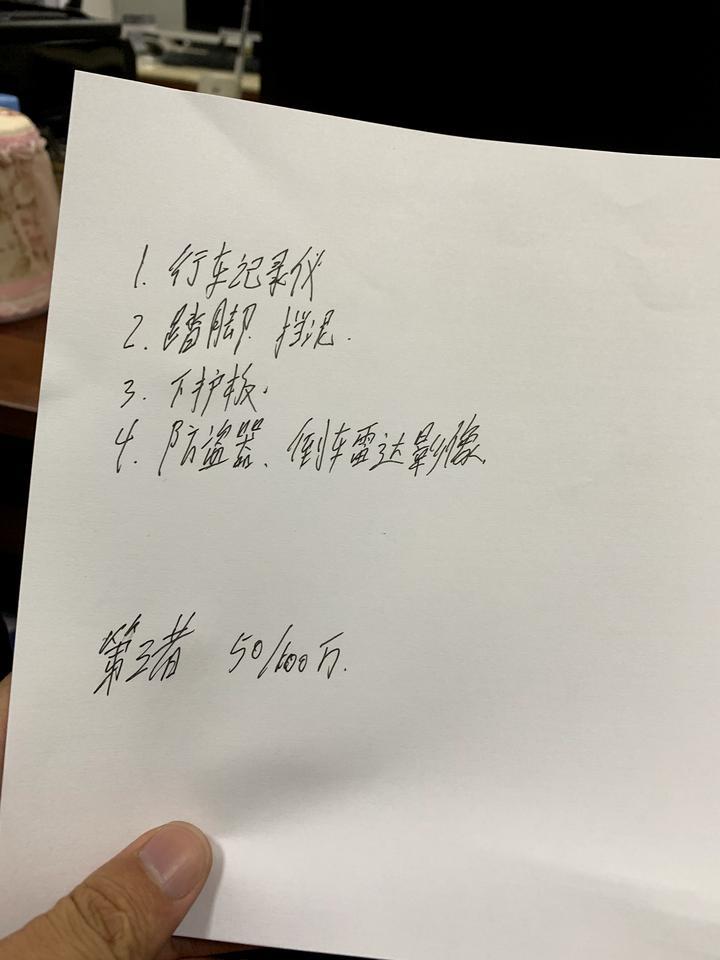 1. 行车记录仪
2. 踏脚 挡泥.
3. 下护板.
4. 防盗器、倒车雷达影像.
第三者 50/100万.